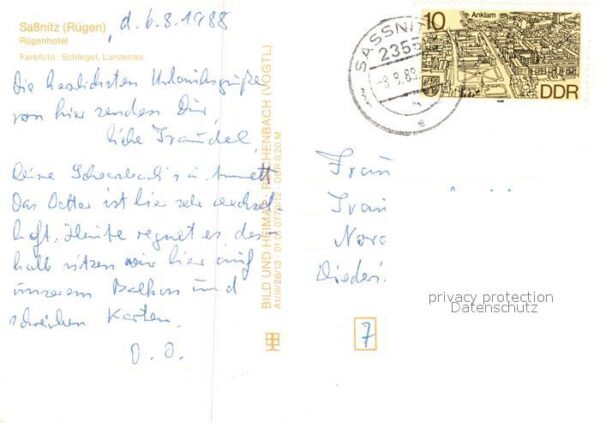 Saßnitz (Rügen)
Rügenhotel
Farbfoto: Schlegel, Lunzenau
d. 6.8.1988
Die herzlichsten Urlaubsgrüße
von hier senden Dir,
liebe Traudel
Deine
Das Wetter ist hier sehr wechsel
haft. Heute regnet es, des
halb sitzen wir hier auf
unserem Balkon und
schreiben Karten.
D. O.
BILD UND HEIMAT REICHENBACH (VOGTL)
A1/III/26/13
SASSNITZ
2355
8.8.88
e
10
Anklam
DDR
Frau
Nord
7
privacy protection
Datenschutz